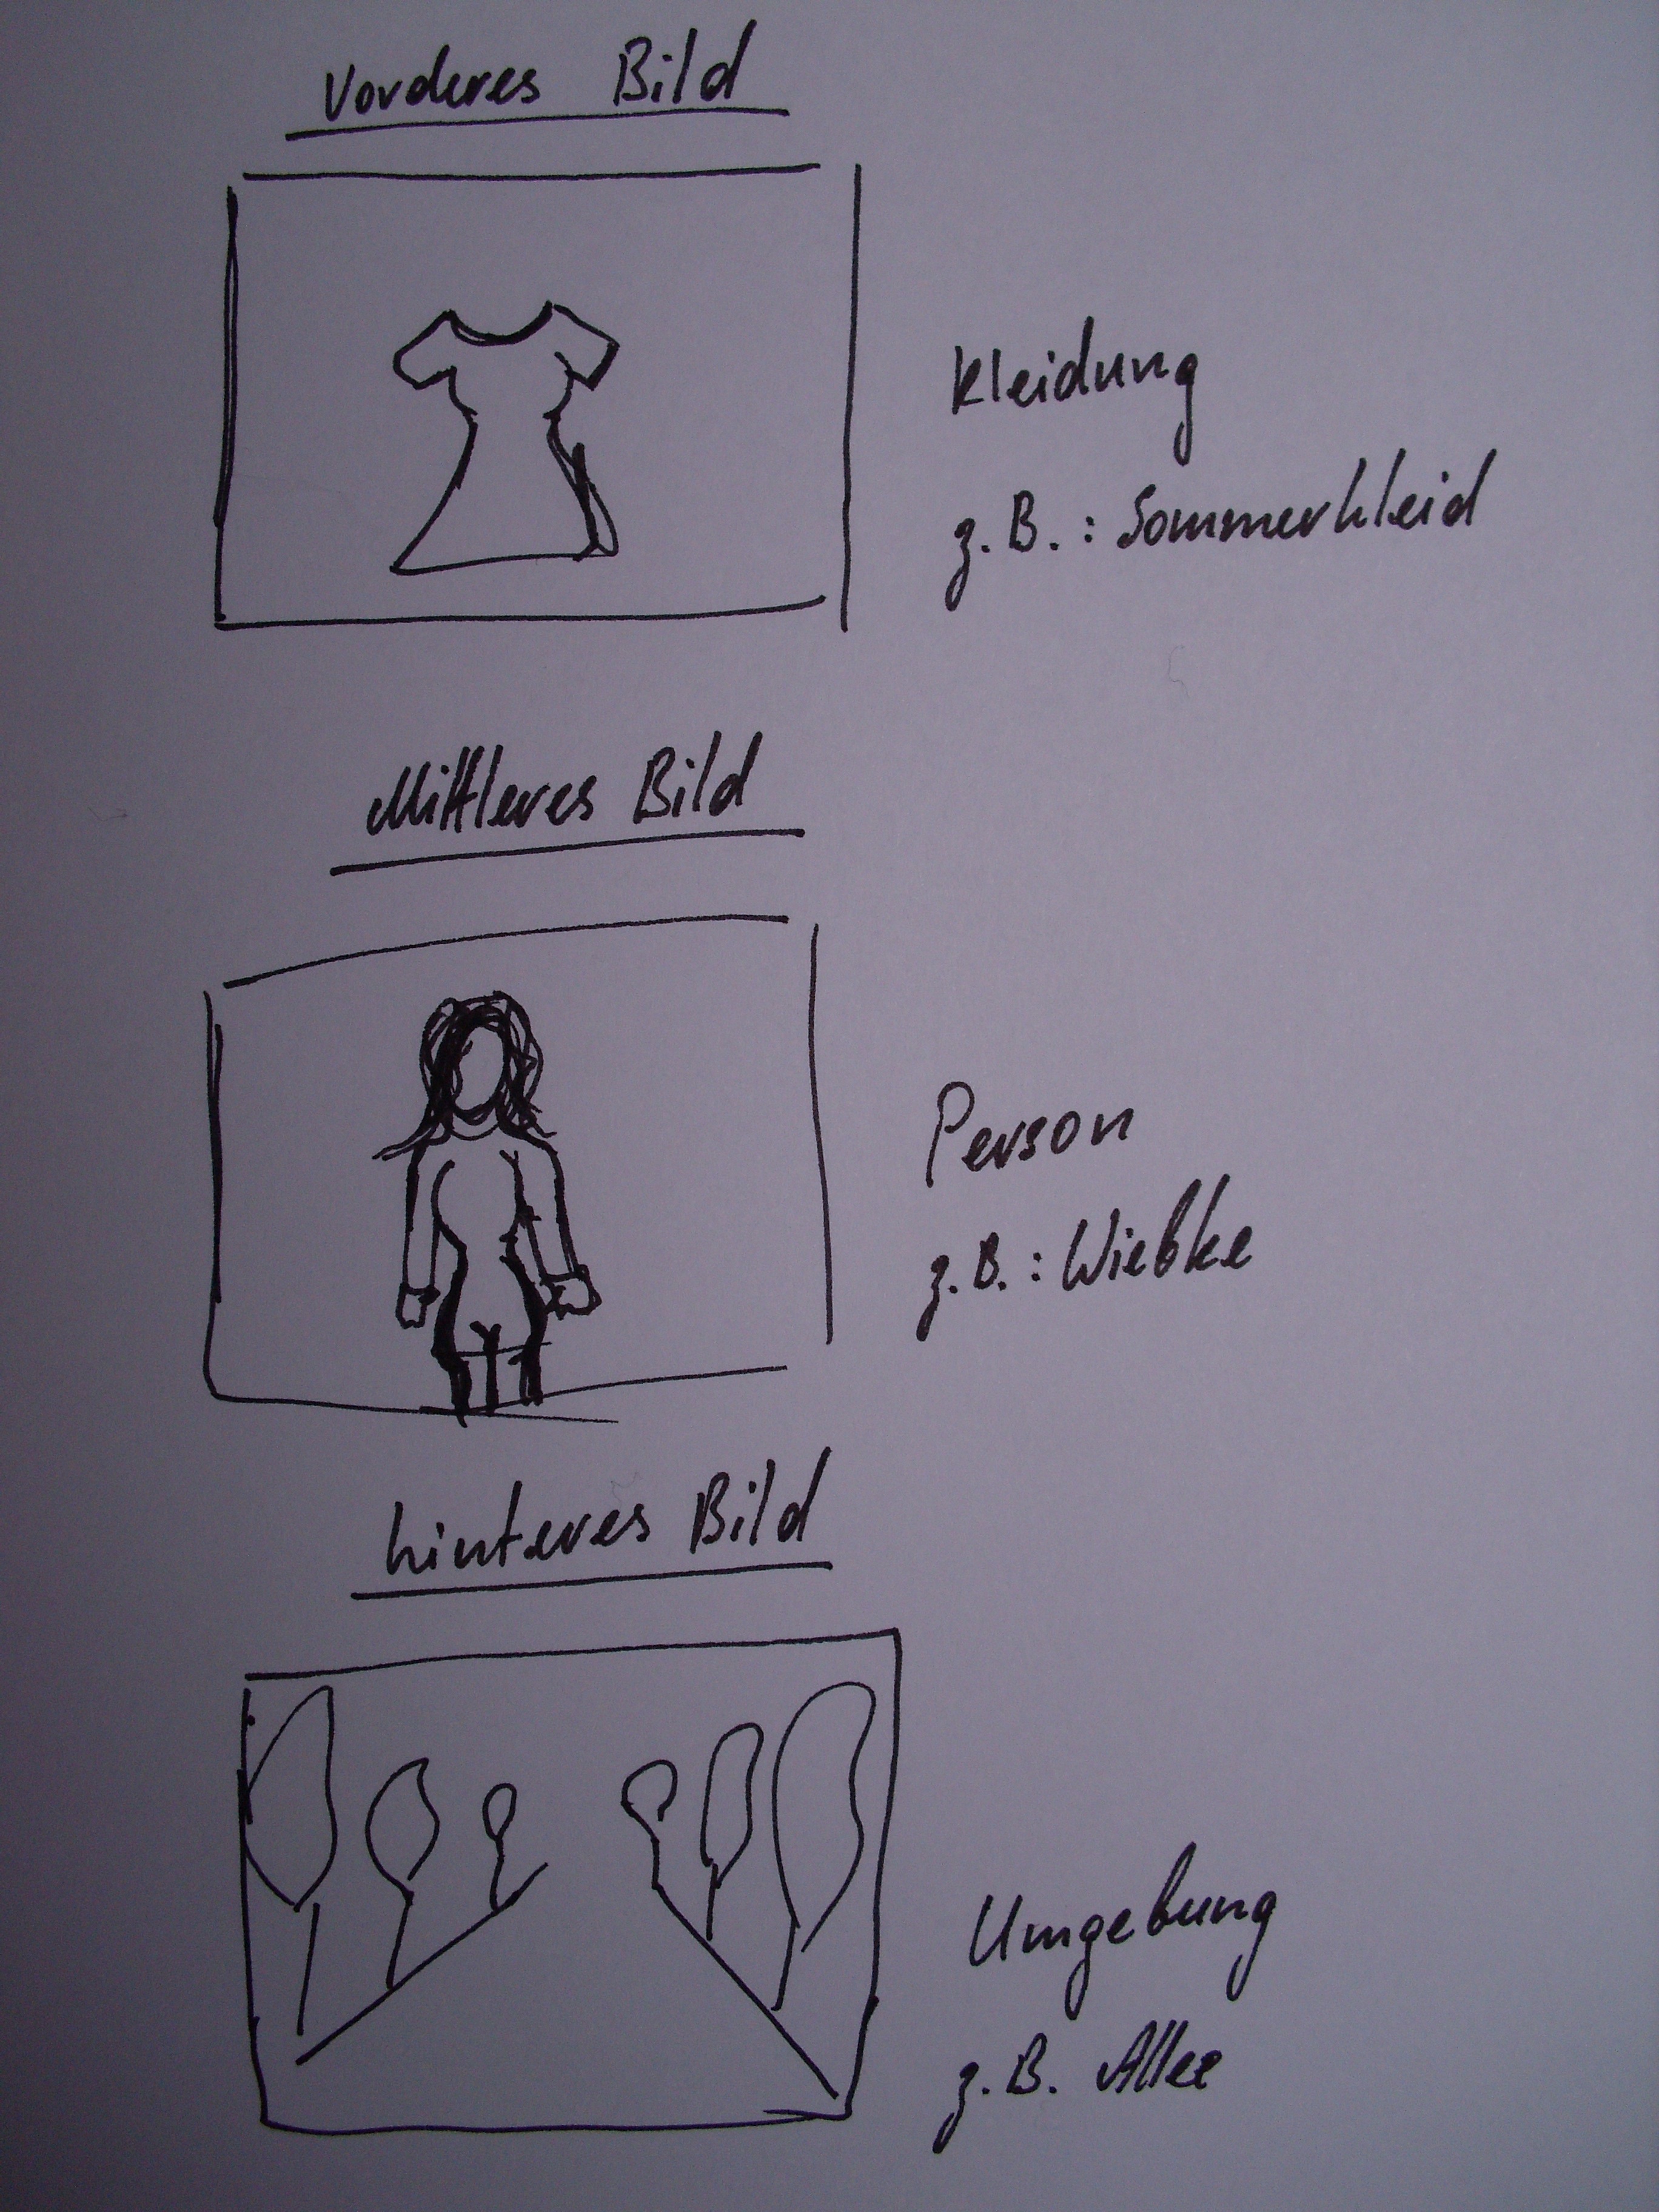 Vorderes Bild
Kleidung
z.B.: Sommerkleid
Mittleres Bild
Person
z.B.: Wiebke
hinteres Bild
Umgebung
z.B. Allee